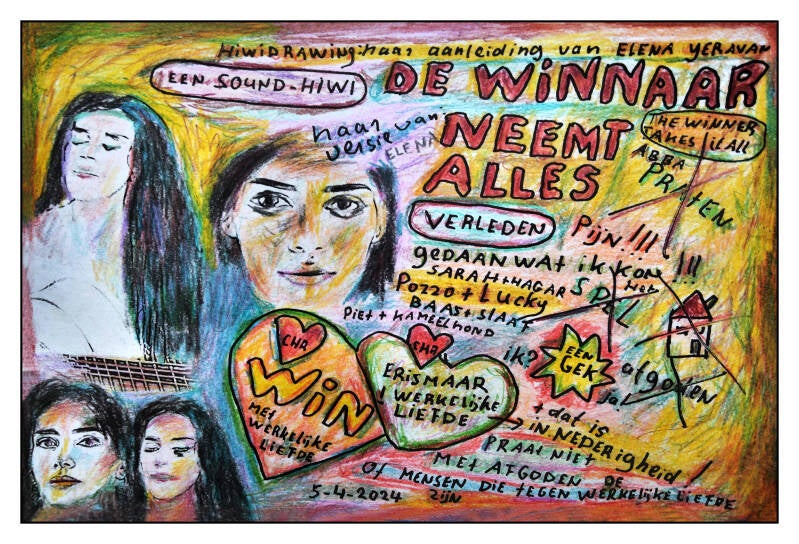 HiWiDRAWiNG: naar aanleiding van ELENA YERAVAN
EEN SOUND-HIWI
DE WiNNAAR
NEEMT
ALLES
naar
versie van
ELENA
THE WINNER
TAKES it ALL
ABBA
PRATEN
VERLEDEN
PijN!!!
gedaan wat ik kon
!!!
SARAH + HAGAR
HET
SPEL
POZZO + LUCKY
BAAS + SLAAF
PiET + KAMEELHOND
ik?
EEN
GEK
afgoden
ja!
CHR
WiN
MET
WERKELijKE
LIEFDE
CHR
ER IS MAAR
1 WERKELijKE
LIEFDE
+ dat is
iN NEDERigheid!
PRAAL NiET
MET AFGODEN
OF MENSEN DiE tEGEN DE WERKELijKE LiEFDE
ZijN
5-4-2024